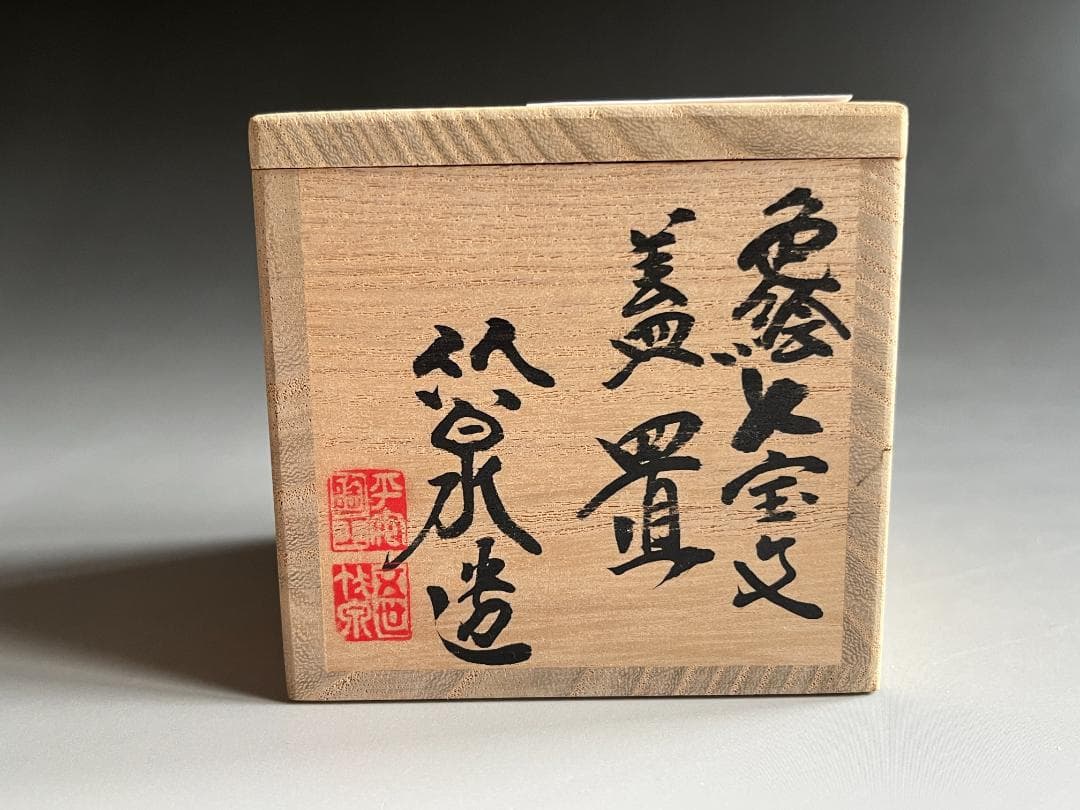 色絵七宝文
蓋置
竹泉造
平安
五世
竹泉